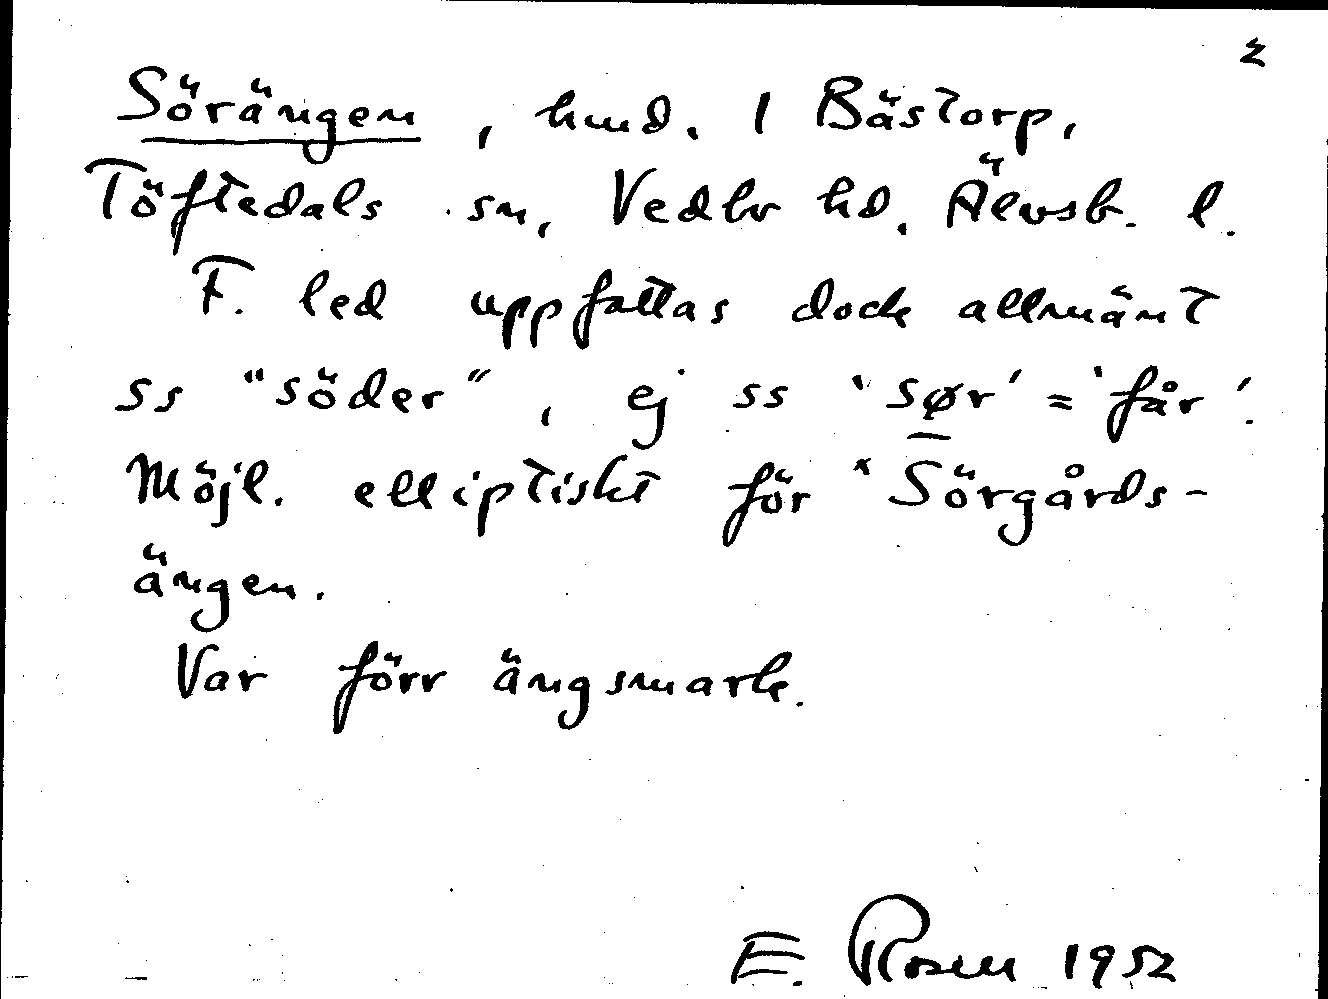 2
Sörängen, hmd. 1 Bästorp,
Töftedals sn, Vedbo hd. Älvsb. l.
F. led uppfattas dock allmänt
ss "söder", ej ss 'sør' = 'får'.
Möjl. elliptiskt för *Sörgårds-
ängen.
Var förr ängsmark.
E. Rosen 1952